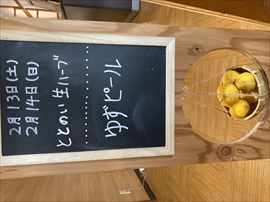 2月13日(土)
2月14日(日)
ととのい生ハーブ
ゆずピール